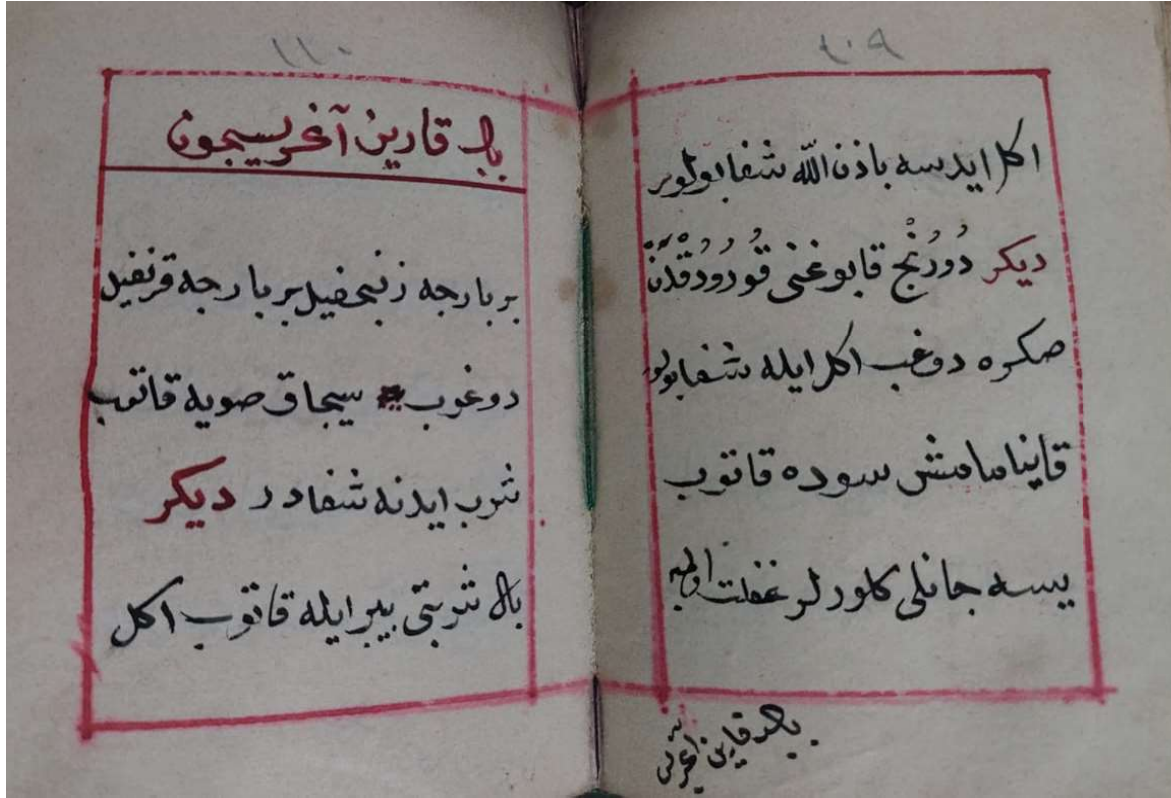 ١٠٩
اكل ايدرسه باذن الله شفا بولور
ديكر دُورُنْج قابوغنى قُورُودُقْدَنْ
صكره دوغب اكل ايله شفا بولور
قاينامامش سوده قاتوب
يسه جانلى كلورلر غفلت اولميه
باب قارين آغريسى
١١٠
باب قارين آغريسيچون
بر پارچه زنجفيل بر پارچه قرنفيل
دوغوب سيجاق صويه قاتوب
شرب ايدنه شفادر ديكر
بال شربتى بيبر ايله قاتوب اكل